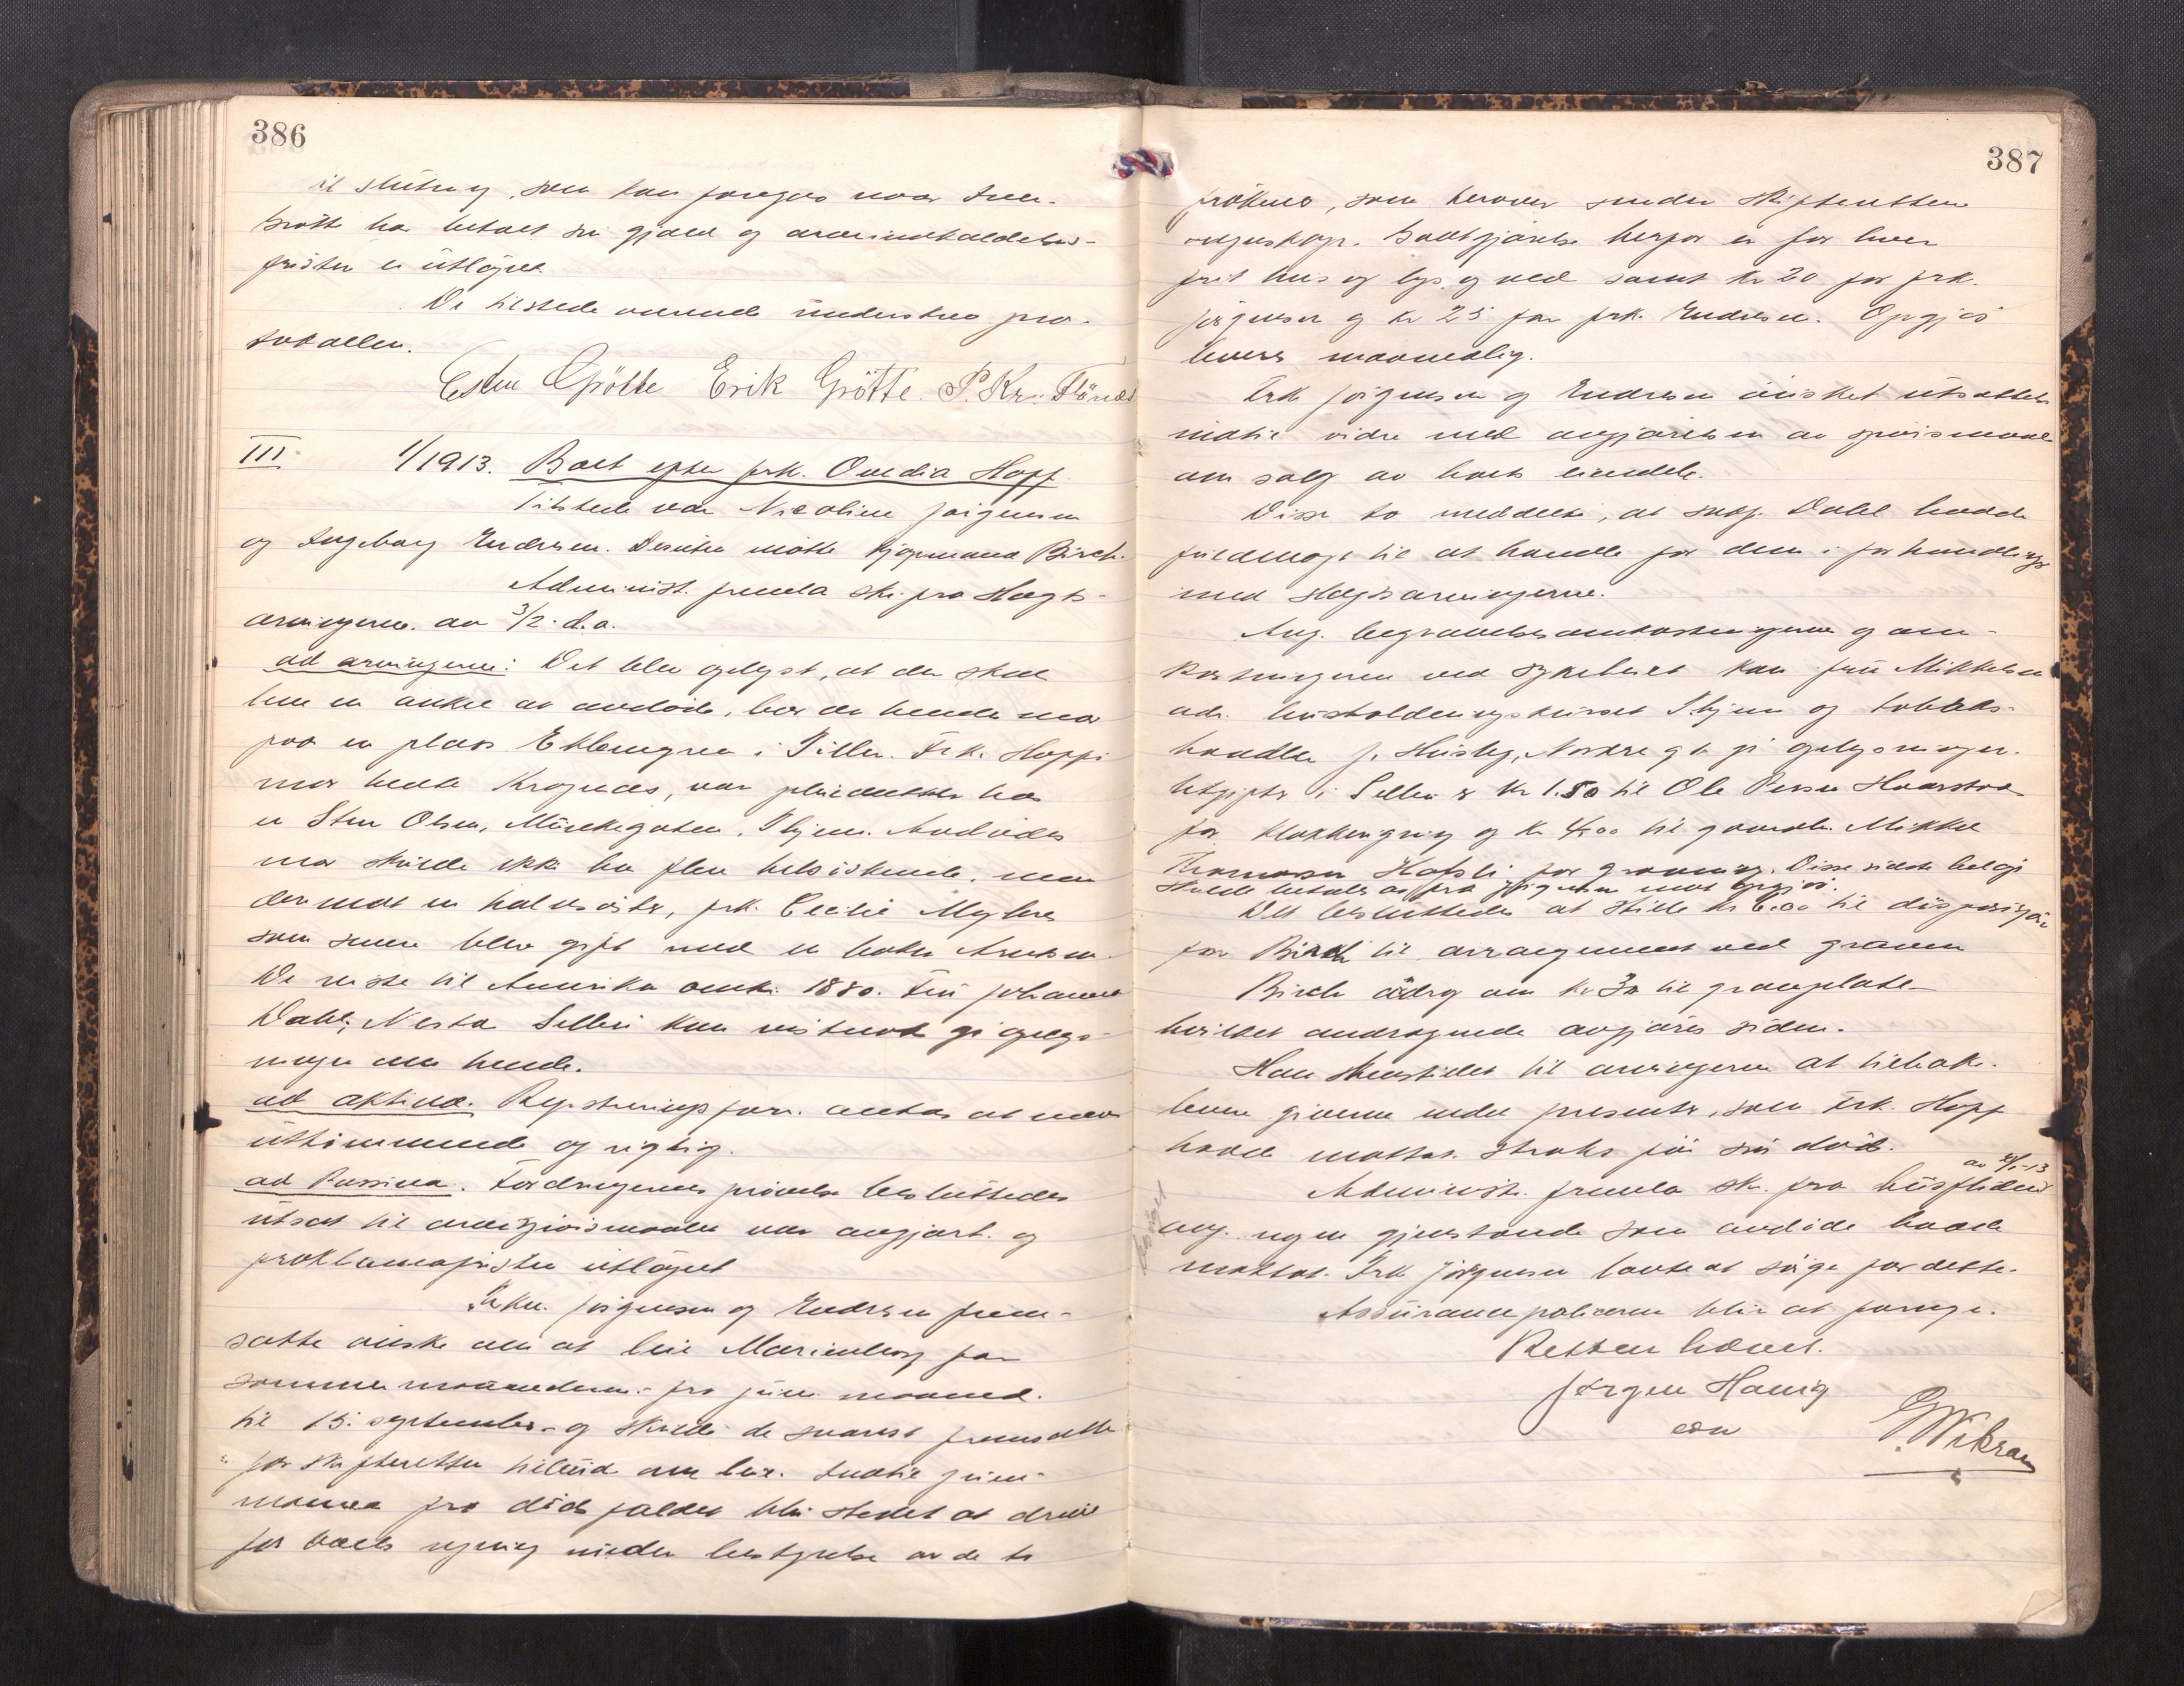 386
til slutning, som kan foregaa naar Sven
Grøtte har betalt sin gjæld og arveindkaldelses-
fristen er utløpet.
De tilstede værende underskrev pro-
tokollen.
Esten Grøtte Erik Grøtte. P. Kr. Flønes
III. 1/1913. Boet efter frk. Ovedia Hopf
Tilstede var Nicoline Jørgensen
og Ingeborg Endresen. Desuten møtte kjøpmand Birch.
Administ. fremla skr. fra Hægts-
arvingerne av 3/2 d.a.
ad arvingerne: Det blev oplyst, at der skal
leve en onkel av avdøde, bror av hendes mor
paa en plads Eklesengen i Tiller. Frk. Hopfs
mor hedte Krognes, var pleiedatter hos
en Sten Olsen, Munkegaten, Thjem. Avdødes
mor skulde ikke ha flere helsøskende, men
derimot en halvsøster, frk. Cecilie Myhre
som senere blev gift med en baker Arntsen.
De reiste til Amerika omkr. 1880. Fru Johanna
Dahl, Nesta Selbu kan vistnok gi oplys-
ninger om hende.
ad aktiva. Registreringsforr. antas at være
uttømmende og rigtig.
ad Passiva. Fordringernes prøvelse besluttedes
utsat til arvespørsmaalet var avgjort og
proklamafristen utløpet
Frkn. Jørgensen og Endresen frem-
satte ønske om at leie Marienborg for
sommermaanederne fra juni maaned
til 15. september og skulde de snarest fremsætte
for skifteretten tilbud om leie. Indtil juni
maaned fra dødsfaldet blir stedet at drive
for boets regning under bestyrelse av de to
387
frøkener, som herover sender skifteretten
regnskap. Godtgjørelse herfor er for hver
frit hus og lys og ved samt kr 20 for frk.
Jørgensen og kr 25 for frk. Endresen. Opgjør
hver maanedlig.
Frk Jørgensen og Endresen ønsket utsættelse
indtil videre med avgjørelsen av spørsmaalet
om salg av boets eiendele.
Disse to meddelte, at sakf. Dahl hadde
fuldmagt til at handle for dem i forhandlinger
med Hægtsarvingerne.
Ang. begravelsesomkostningerne og om-
kostningerne ved sykeleiet kan fru Mikkelsen
adr. husholdningskurset Thjem og tobaks-
handler J. Huseby, Nordre gt. gi oplysninger.
Utgifter i Selbu er kr 1.50 til Ole Persen Haarstad
for klokkeringning og kr 4.00 til gaardbr. Mikkel
Thomassen Hofsli for gravning. Disse sidste beløp
skulde betales av frk Jørgensen mot opgjør.
Det besluttedes at stille kr 6.00 til disposisjon
for Birch til arrangement ved graven
Birch androg om kr 30 til gravplate
hvilket andragende avgjøres siden.
Han henstillet til arvingerne at tilbake-
levere giverne endel presenter, som Frk. Hopf
hadde mottat straks før sin død.
Administ. fremla skr. fra husfliden av 24/1-13
ang. nogen gjenstande som avdøde hadde
mottat. Frk Jørgensen lovte at sørge for dette.
Assurancepoliserne blir at fornye.
Retten hævet.
Jørgen Hanig
edsv
G Wikran